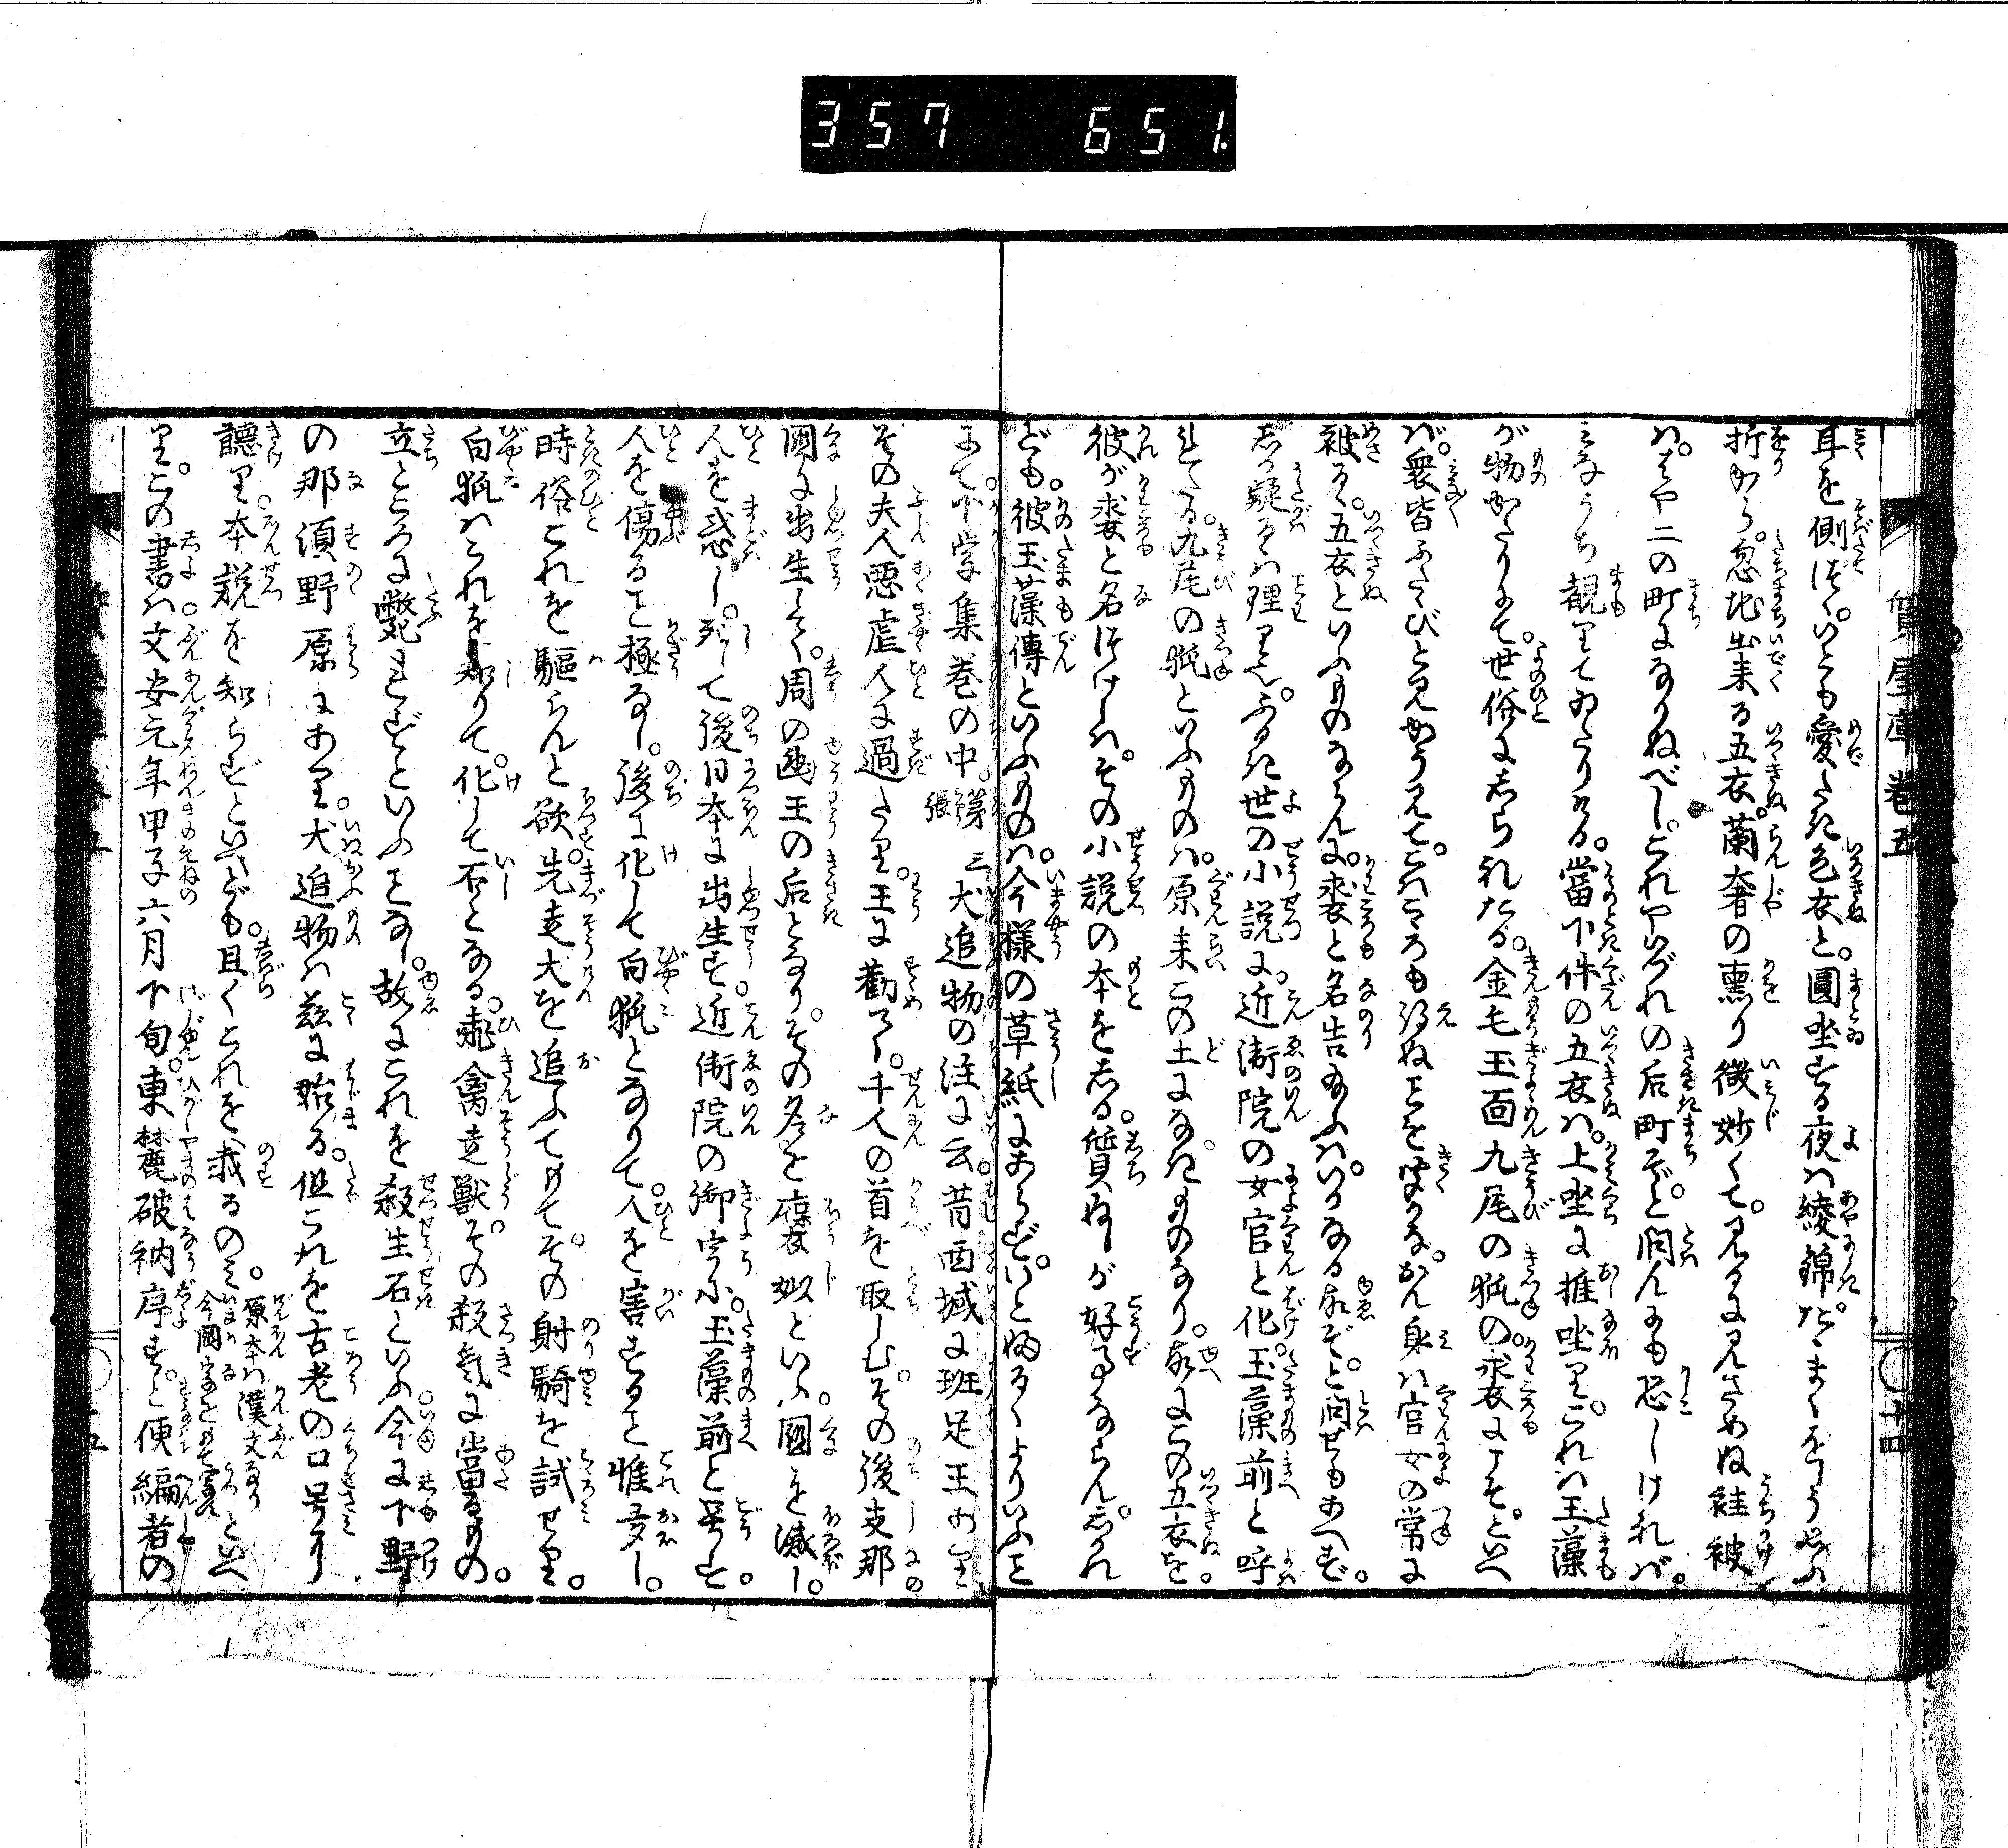 357 651.
質屋庫 巻五
耳を側だて。いとも愛たき色衣と。圓坐する夜は綾錦。たゝまくをしう思ふ
折から。忽地出来る五衣。蘭奢の熏り微妙くて。見るに見さめぬ袿被
は。はや二の町になりぬべし。これやいづれの后町ぞと。問んにも恐しければ。
みなうち覩りてゐたりける。當下件の五衣は。上坐に推坐り。これは玉藻
が物がたりにて。世俗にしられたる。金毛玉面九尾の狐の。裘にこそ。といへ
ば。衆皆ふたゝびと見かう見て。こはこゝろも得ぬことを聞くかな。おん身は官女の常に
被る。五衣といふものならんに。裘と名告給ふは。いかなる故ぞ。と問せもあへず。
しか疑るゝは理りも。ふるき世の小説に。近衛院の女官と化。玉藻前と呼
れたる。九尾の狐といふものは。原来この土になきものなり。故にこの五衣を。
彼が裘と名づけしは。その小説の本をしる。質ぬしが好るならん。しかれ
ども。彼玉藻傳といふものは。今様の草紙にあらず。いと古くよりいふこと
にて。下学集巻の中。第三張 犬追物の注に云。昔西域に班足王あり
その夫人悪虐人に過たり。王に勸て。千人の首を取しむ。その後支那
國に出生して。周の幽王の后となり。その名を褒姒といふ。國を滅し。
人を惑し。死して後日本に出生す。近衛院の御宇に。玉藻前と号す。
人を傷ること極なし。後に化して白狐となりて。人を害すること惟多し。
時俗これを驅らんと欲。先走犬を追ふてもて。その射騎を試せり。
白狐はこれを知りて。化して石となる。飛禽走獣その殺氣に當るもの。
立ところに斃れずといふことなし。故にこれを殺生石といふ。今に下野
の那須野原にあり。犬追物は茲に始る。但これを古老の口号り
聽り。本説を知らずといへども。且くこれを載るのみ。原本は漢文なり今國字をもて寫ス といへ
り。この書は文安元年甲子六月下旬。東麓破衲序す。と便編者の